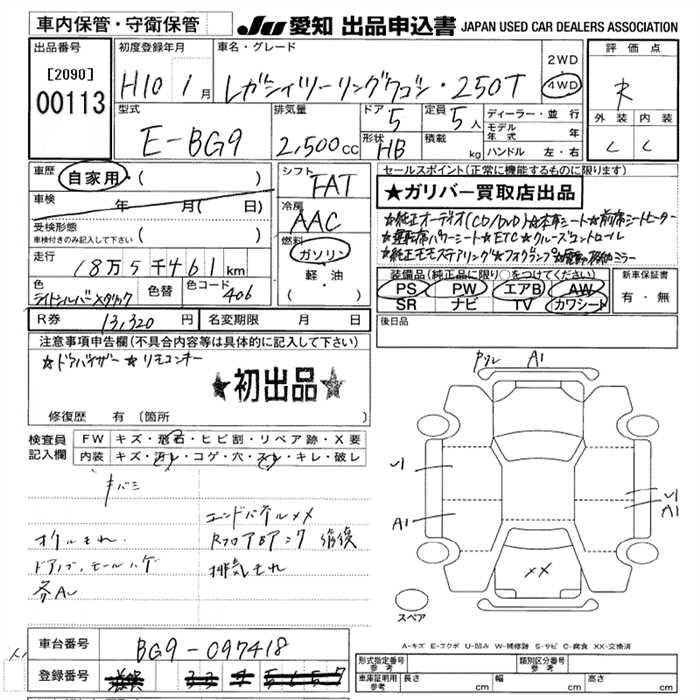 車内保管・守衛保管
JU 愛知 出品申込書 JAPAN USED CAR DEALERS ASSOCIATION
出品番号
[2090]
00113
初度登録年月
H10 1月
車名・グレード
レガシィツーリングワゴン・250T
2WD
4WD
評価点
R
外装 内装
C C
型式
E-BG9
排気量
2,500cc
ドア 5
定員 5人
形状 HB
積載 kg
ディーラー・並行
モデル年式 年
ハンドル 左・右
車歴 自家用・( )
車検 年 月( 日)
受検形態
車検付きのみ記入して下さい ( )
走行
18万5千461km
色
ライトシルバーメタリック
色替
色コード 406
シフト
FAT
冷房
AAC
燃料
ガソリン
軽・油
( )
セールスポイント(正常に機能するものに限ります)
★ガリバー買取店出品
★純正オーディオ(CD/DVD)★本革シート★前席シートヒーター
★運転席パワーシート★ETC★クルーズコントロール
★純正モモステアリング★フォグランプ
装備品(純正品に限り○をつけてください)
PS PW エアB AW
SR ナビ TV カワシート
新車保証書
有・無
R券 13,320円
名変期限 月 日
後日品
注意事項申告欄(不具合内容等は具体的に記入して下さい)
★ドアバイザー★リモコンキー
★初出品★
修復歴 有(箇所
検査員記入欄
FW キズ・飛石・ヒビ割・リペア跡・X要
内装 キズ・汚レ・コゲ・穴・スレ・キレ・破レ
キバミ
オイルもれ
各A
排気もれ
カワレ A1
A1
A1
XX
スペア
A-キズ E-エクボ U-凹み W-補修跡 S-サビ C-腐食 XX-交換済
車台番号 BG9-097418
登録番号
形式指定番号 参考
類別区分番号 参考
車庫証明用 参考 長さ cm 幅 cm 高さ cm